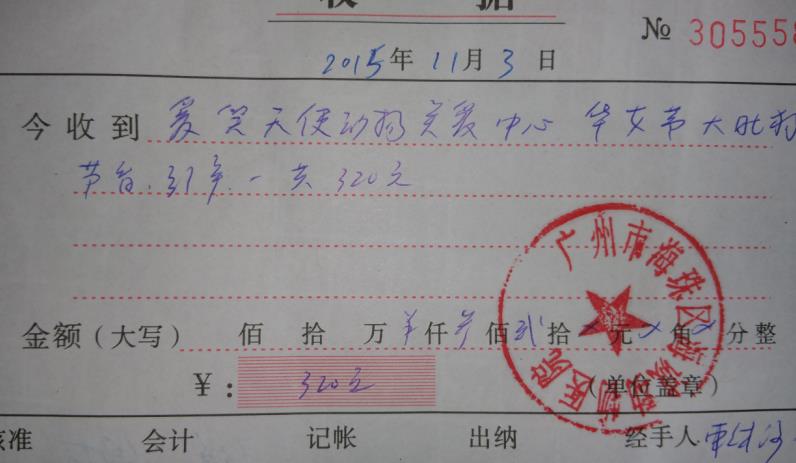 收 据
№ 305558
2015年 11月 3 日
今 收 到 爱哭天使动物关爱中心 华女节大肚
节育.引产.一共 320元
广州市海珠区 动物医院
金额（大写） 佰 拾 万 仟 叁 佰 贰 拾 元 角 分 整
￥： 320元
（单位盖章）
核准 会计 记帐 出纳 经手人